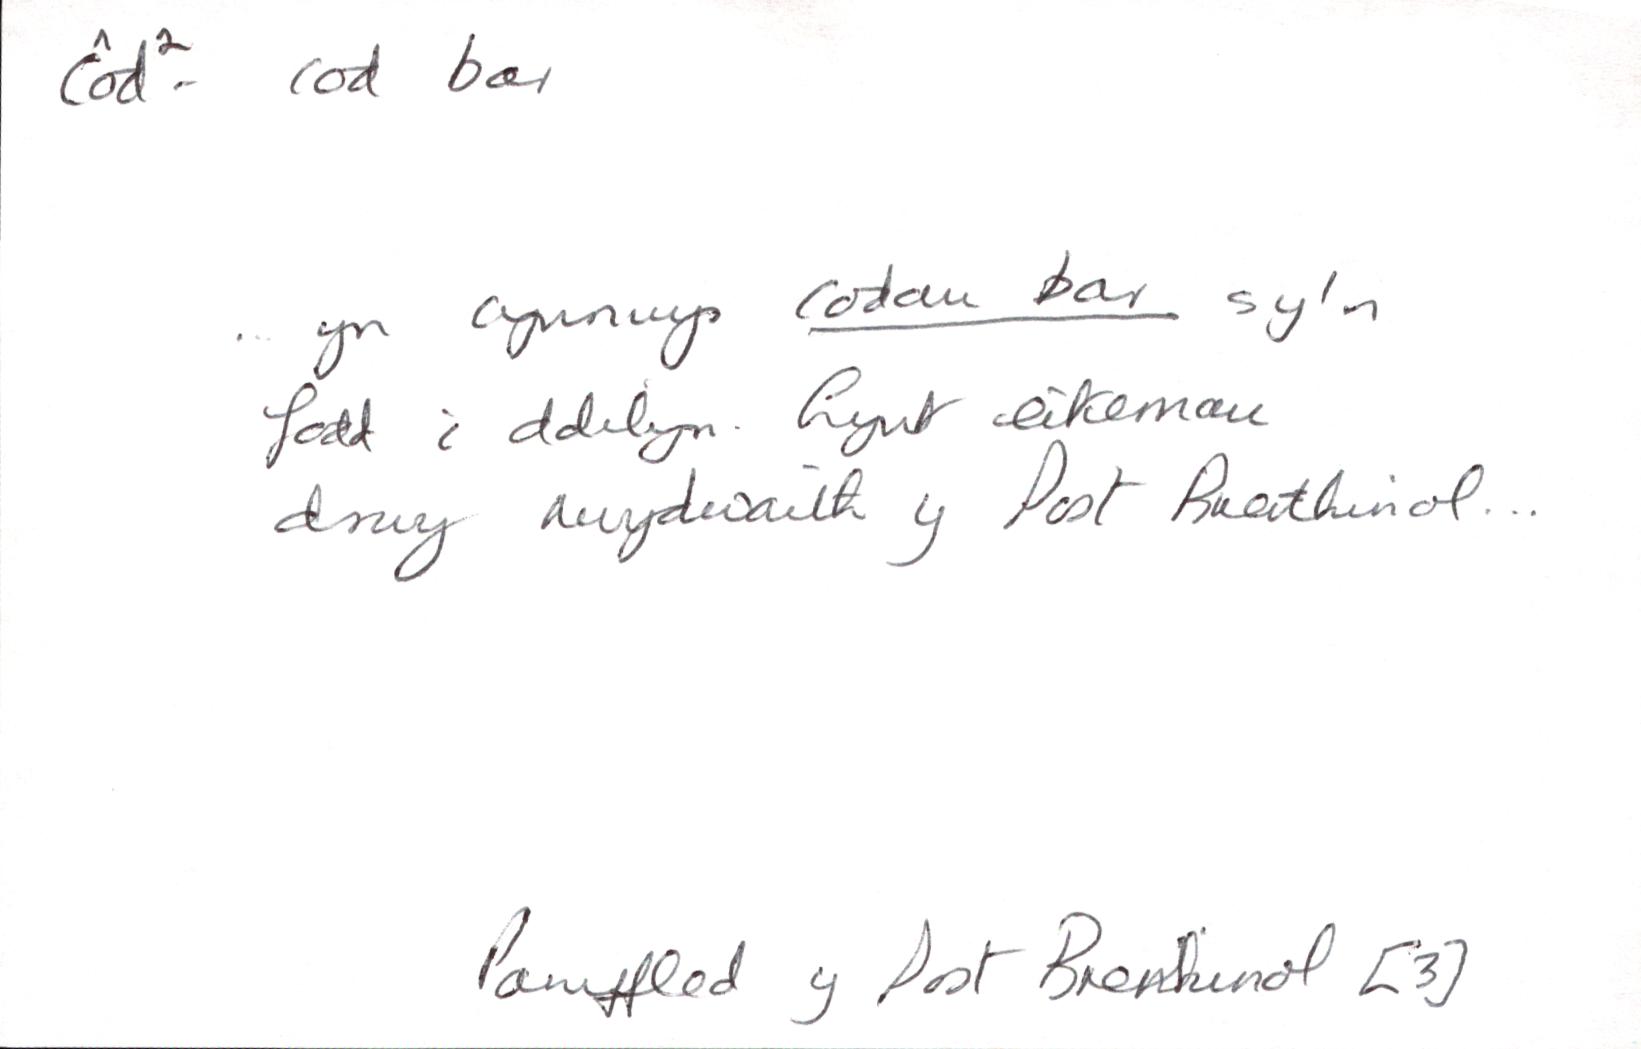 côd² - cod bar
... yn cynnwys codau bar sy'n
fodd i ddilyn hynt eitemau
drwy rwydwaith y Post Brenhinol...
Pamffled y Post Brenhinol [3]